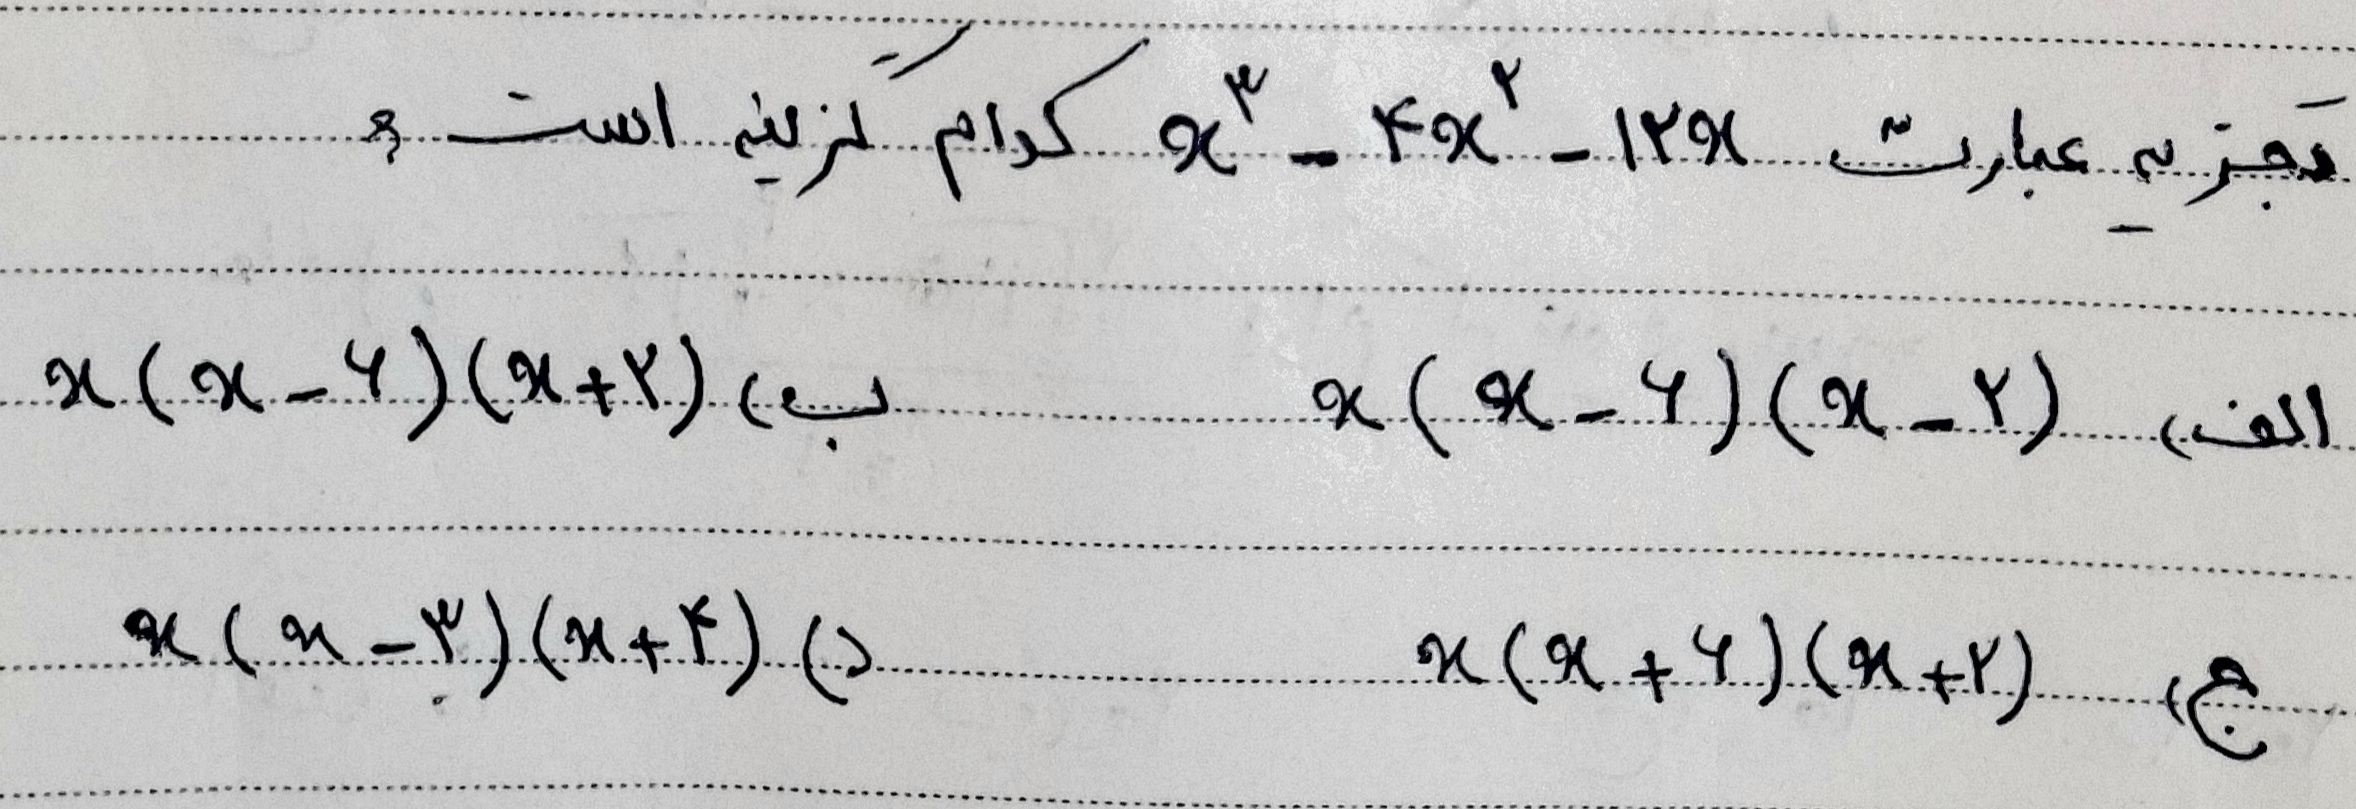 تجزیه عبارت x^۳ - ۴x^۲ - ۱۲x کدام گزینه است ؟
الف) x(x-۶)(x-۲) ب) x(x-۶)(x+۲)
ج) x(x+۶)(x+۲) د) x(x-۳)(x+۴)